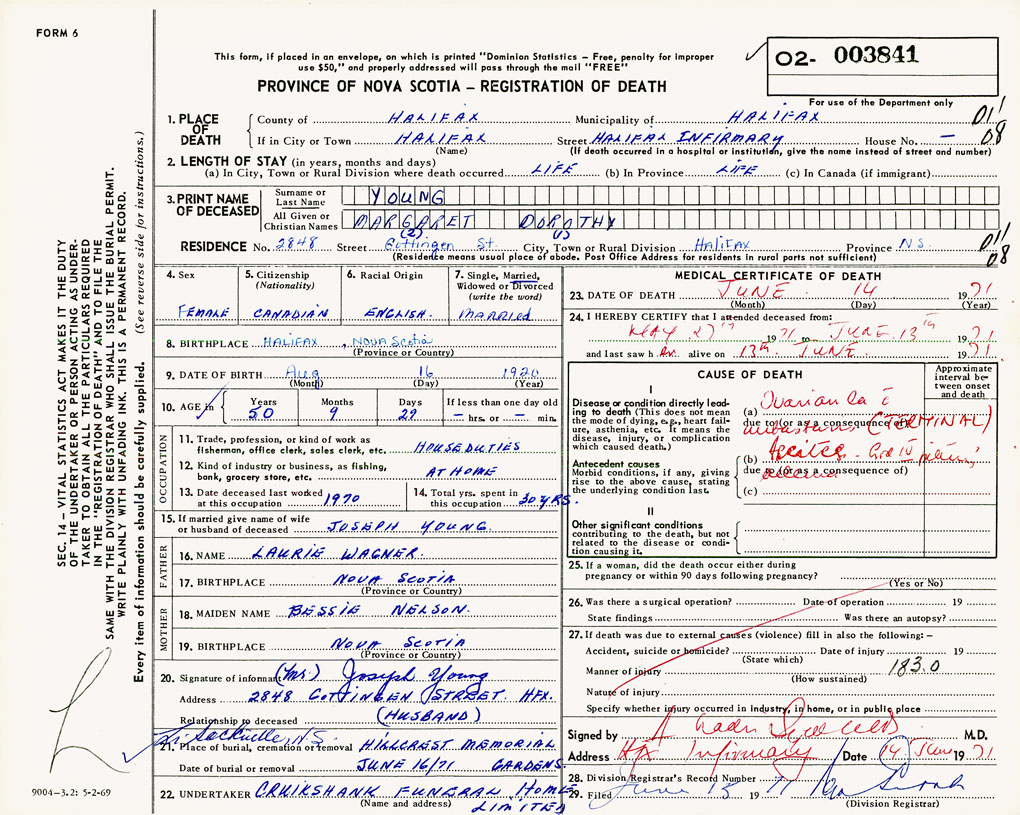 FORM 6
This form, if placed in an envelope, on which is printed "Dominion Statistics – Free, penalty for improper
use $50," and properly addressed will pass through the mail "FREE"
O2- 003841
PROVINCE OF NOVA SCOTIA – REGISTRATION OF DEATH
For use of the Department only
1. PLACE OF DEATH
County of HALIFAX Municipality of HALIFAX 01'
If in City or Town HALIFAX Street HALIFAX INFIRMARY House No. — 08
(Name) (If death occurred in a hospital or institution, give the name instead of street and number)
2. LENGTH OF STAY (in years, months and days)
(a) In City, Town or Rural Division where death occurred LIFE (b) In Province LIFE (c) In Canada (if immigrant)
3. PRINT NAME OF DECEASED
Surname or Last Name YOUNG
All Given or Christian Names MARGARET DOROTHY
(2) (1)
RESIDENCE No. 2848 Street Gottingen St. City, Town or Rural Division HALIFAX Province N.S. 01'
(Residence means usual place of abode. Post Office Address for residents in rural parts not sufficient) 08
4. Sex FEMALE
5. Citizenship (Nationality) CANADIAN
6. Racial Origin ENGLISH.
7. Single, Married, Widowed or Divorced (write the word) MARRIED
8. BIRTHPLACE HALIFAX, NOVA Scotia
(Province or Country)
9. DATE OF BIRTH Aug 16 1920
(Month) (Day) (Year)
10. AGE in Years 50 Months 9 Days 29 If less than one day old — hrs. or — min.
OCCUPATION
11. Trade, profession, or kind of work as
fisherman, office clerk, sales clerk, etc. HOUSE DUTIES
12. Kind of industry or business, as fishing,
bank, grocery store, etc. AT HOME
13. Date deceased last worked
at this occupation 1970
14. Total yrs. spent in
this occupation 30 YRS.
15. If married give name of wife
or husband of deceased JOSEPH YOUNG.
FATHER
16. NAME LAURIE WAGNER.
17. BIRTHPLACE NOVA SCOTIA
(Province or Country)
MOTHER
18. MAIDEN NAME BESSIE NELSON.
19. BIRTHPLACE NOVA SCOTIA
(Province or Country)
20. Signature of informant (Mr) Joseph Young
Address 2848 GOTTINGEN STREET. HFX.
Relationship to deceased (HUSBAND)
Sackville, N.S.
21. Place of burial, cremation or removal HILLCREST MEMORIAL
Date of burial or removal JUNE 16/71 GARDENS.
22. UNDERTAKER CRUIKSHANK FUNERAL HOME
(Name and address) LIMITED
MEDICAL CERTIFICATE OF DEATH
23. DATE OF DEATH JUNE 14 1971
(Month) (Day) (Year)
24. I HEREBY CERTIFY that I attended deceased from:
MAY 27th 1971 to JUNE 13th 1971
and last saw her alive on 13th JUNE 1971.
CAUSE OF DEATH
Approximate interval between onset and death
I
Disease or condition directly leading to death (This does not mean the mode of dying, e.g., heart failure, asthenia, etc. It means the disease, injury, or complication which caused death.)
(a) Ovarian Ca
due to (or as a consequence of)
(TERMINAL)
Antecedent causes
Morbid conditions, if any, giving rise to the above cause, stating the underlying condition last.
(b) Ascites
due to (or as a consequence of)
(c)
II
Other significant conditions
contributing to the death, but not
related to the disease or condition causing it.
25. If a woman, did the death occur either during
pregnancy or within 90 days following pregnancy?
(Yes or No)
26. Was there a surgical operation? Date of operation 19
State findings Was there an autopsy?
27. If death was due to external causes (violence) fill in also the following: –
Accident, suicide or homicide? Date of injury 19
(State which)
Manner of injury 183.0
(How sustained)
Nature of injury
Specify whether injury occurred in industry, in home, or in public place
Signed by M.D.
Address Hfx Infirmary Date 14 June 1971
28. Division Registrar's Record Number
29. Filed June 15 1971
(Division Registrar)
SEC. 14 – VITAL STATISTICS ACT MAKES IT THE DUTY
OF THE UNDERTAKER OR PERSON ACTING AS UNDER-
TAKER TO OBTAIN ALL THE PARTICULARS REQUIRED
IN THE "REGISTRATION OF DEATH" AND TO FILE THE
SAME WITH THE DIVISION REGISTRAR WHO SHALL ISSUE THE BURIAL PERMIT.
WRITE PLAINLY WITH UNFADING INK. THIS IS A PERMANENT RECORD.
Every item of information should be carefully supplied. (See reverse side for instructions.)
9004-3.2: 5-2-69